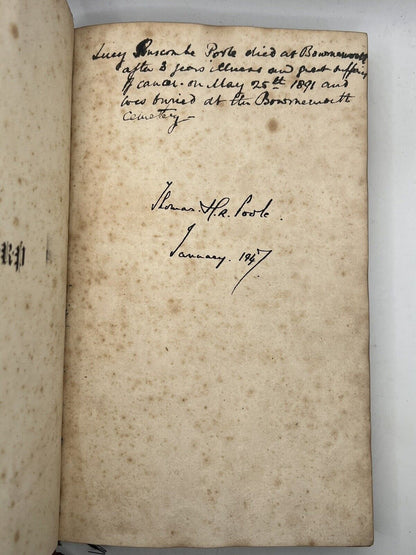 Lucy Ruscombe Poole died at Bournemouth
after 3 years illness and great suffering
of cancer. on May 25th 1891 and
was buried at the Bournemouth
Cemetery—
Thomas. H. R. Poole.
January. 1847